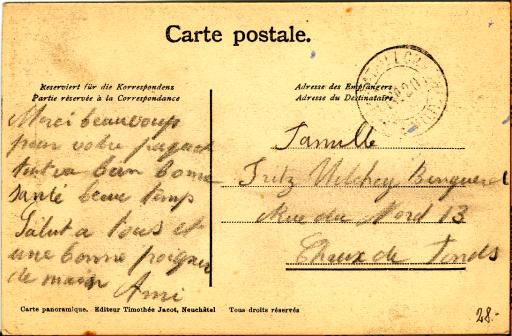 Carte postale.
Reserviert für die Korrespondenz
Partie réservée à la Correspondance
Adresse des Empfängers
Adresse du Destinataire
Merci beaucoup
pour votre paquet
tout va bien bonne
santé beau temps
Salut a tous et
une bonne poignée
de main
Ami
Famille
Fritz
Rue du Nord 13
Chaux de Fonds
Carte panoramique. Editeur Timothée Jacot, Neuchâtel Tous droits réservés
28.-